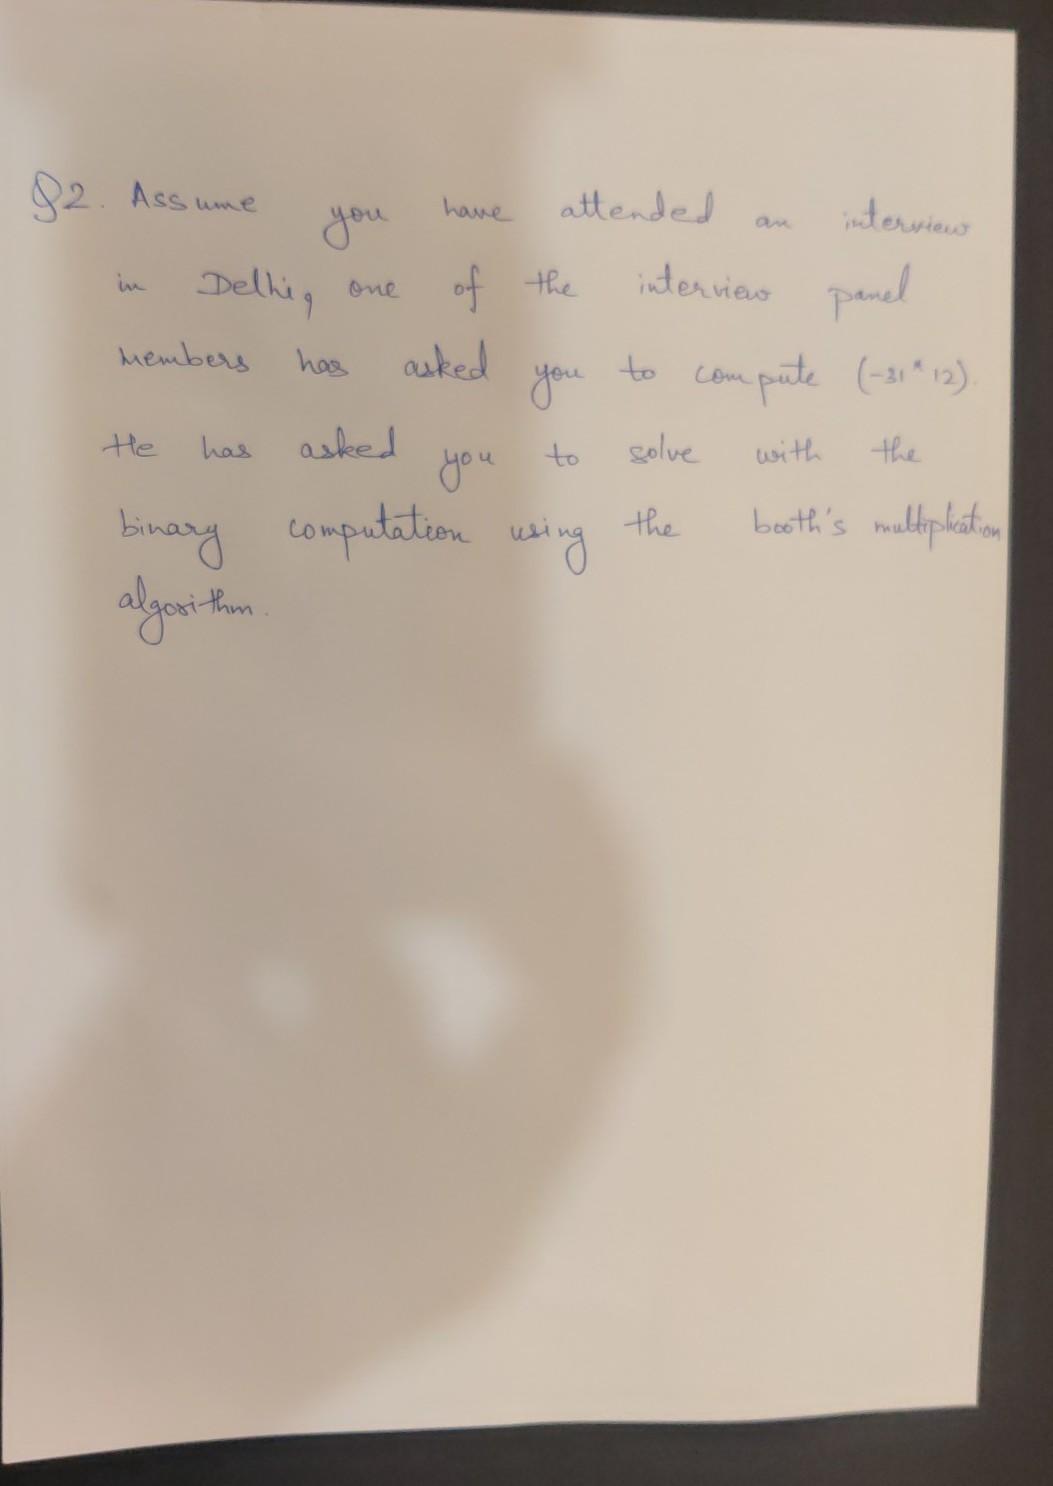 Q2. Assume you have attended an interview
in Delhi, one of the interview panel
members has asked you to compute (-31 * 12).
He has asked you to solve with the
binary computation using the booth's multiplication
algorithm.